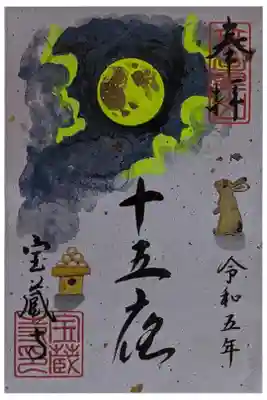 奉拝
令和五年
十五夜
宝蔵寺